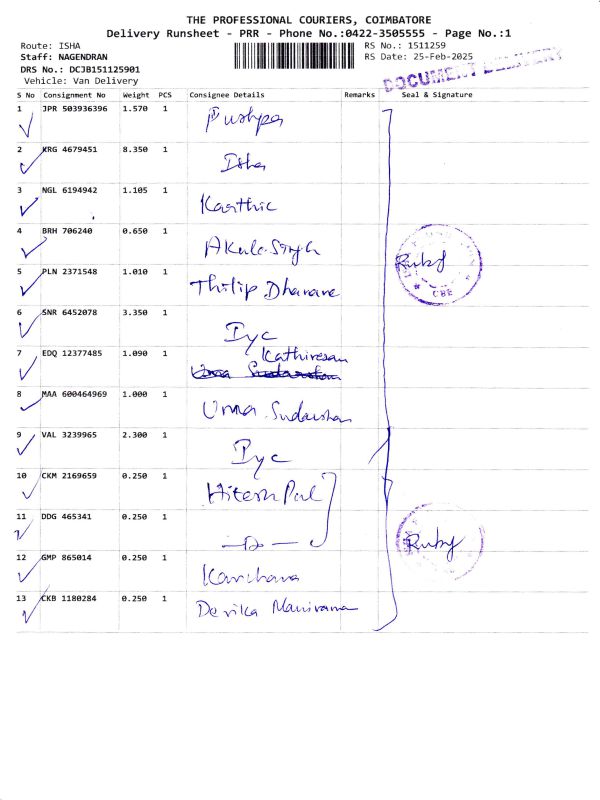 THE PROFESSIONAL COURIERS, COIMBATORE
Delivery Runsheet - PRR - Phone No.:0422-3505555 - Page No.:1
Route: ISHA
RS No.: 1511259
Staff: NAGENDRAN
RS Date: 25-Feb-2025
DRS No.: DCJB151125901
Vehicle: Van Delivery
DOCUMENT DELIVERY
S No Consignment No Weight PCS Consignee Details Remarks Seal & Signature
1 JPR 503936396 1.570 1 Pushpa
2 KRG 4679451 8.350 1 Isha
3 NGL 6194942 1.105 1 Karthic
4 BRH 706240 0.650 1 Akula Singh
Ruby
CBE
5 PLN 2371548 1.010 1 Thilip Dharane
6 SNR 6452078 3.350 1 Iyc
7 EDQ 12377485 1.090 1 Kathiresan
8 MAA 600464969 1.000 1 Uma Sudarshan
9 VAL 3239965 2.300 1 Iyc
10 CKM 2169659 0.250 1 Hitesh Pal
11 DDG 465341 0.250 1 —Do—
Ruby
12 GMP 865014 0.250 1 Kanchana
13 CKB 1180284 0.250 1 Devika Manirama